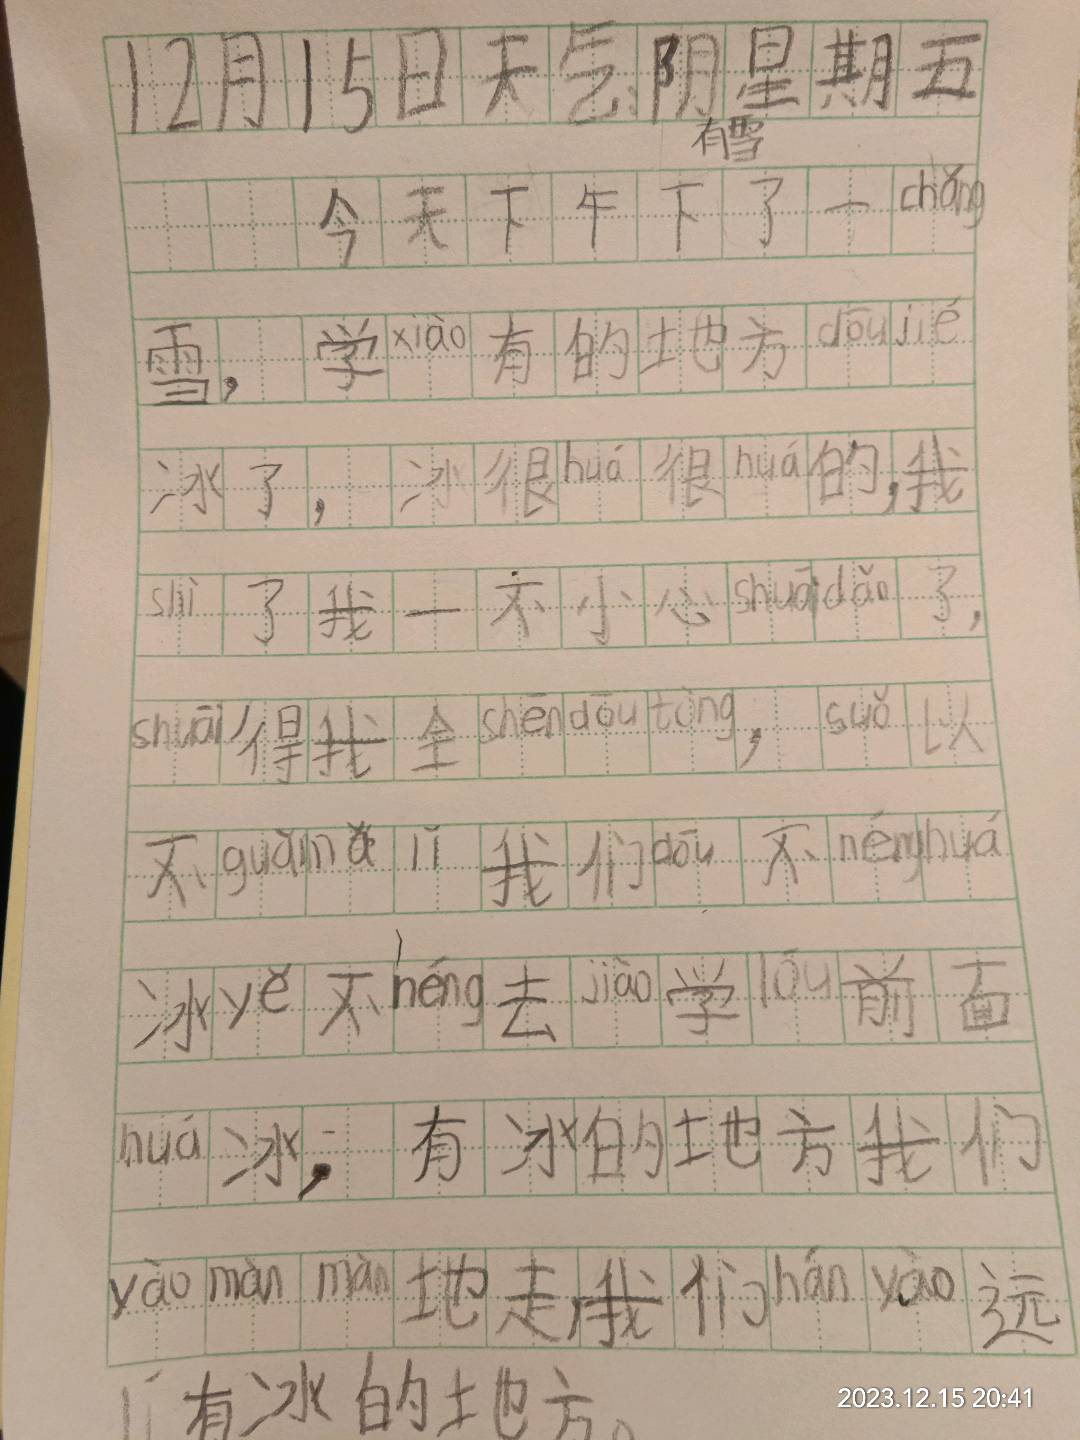 12月15日天气阴星期五
有雪
今天下午下了一chǎng
雪，学xiào有的地方dōu jié
冰了，冰很huá很huá的，我
shì了我一不小心shuāi dǎo了，
shuāi得我全shēn dōu tòng，suǒ以
不guǎi nǎ lǐ我们dōu不néng huá
冰yě不néng去jiào学lóu前面
huá冰，有冰的地方我们
yào màn màn地走，我们hán yào远
lí有冰的地方。
2023.12.15 20:41